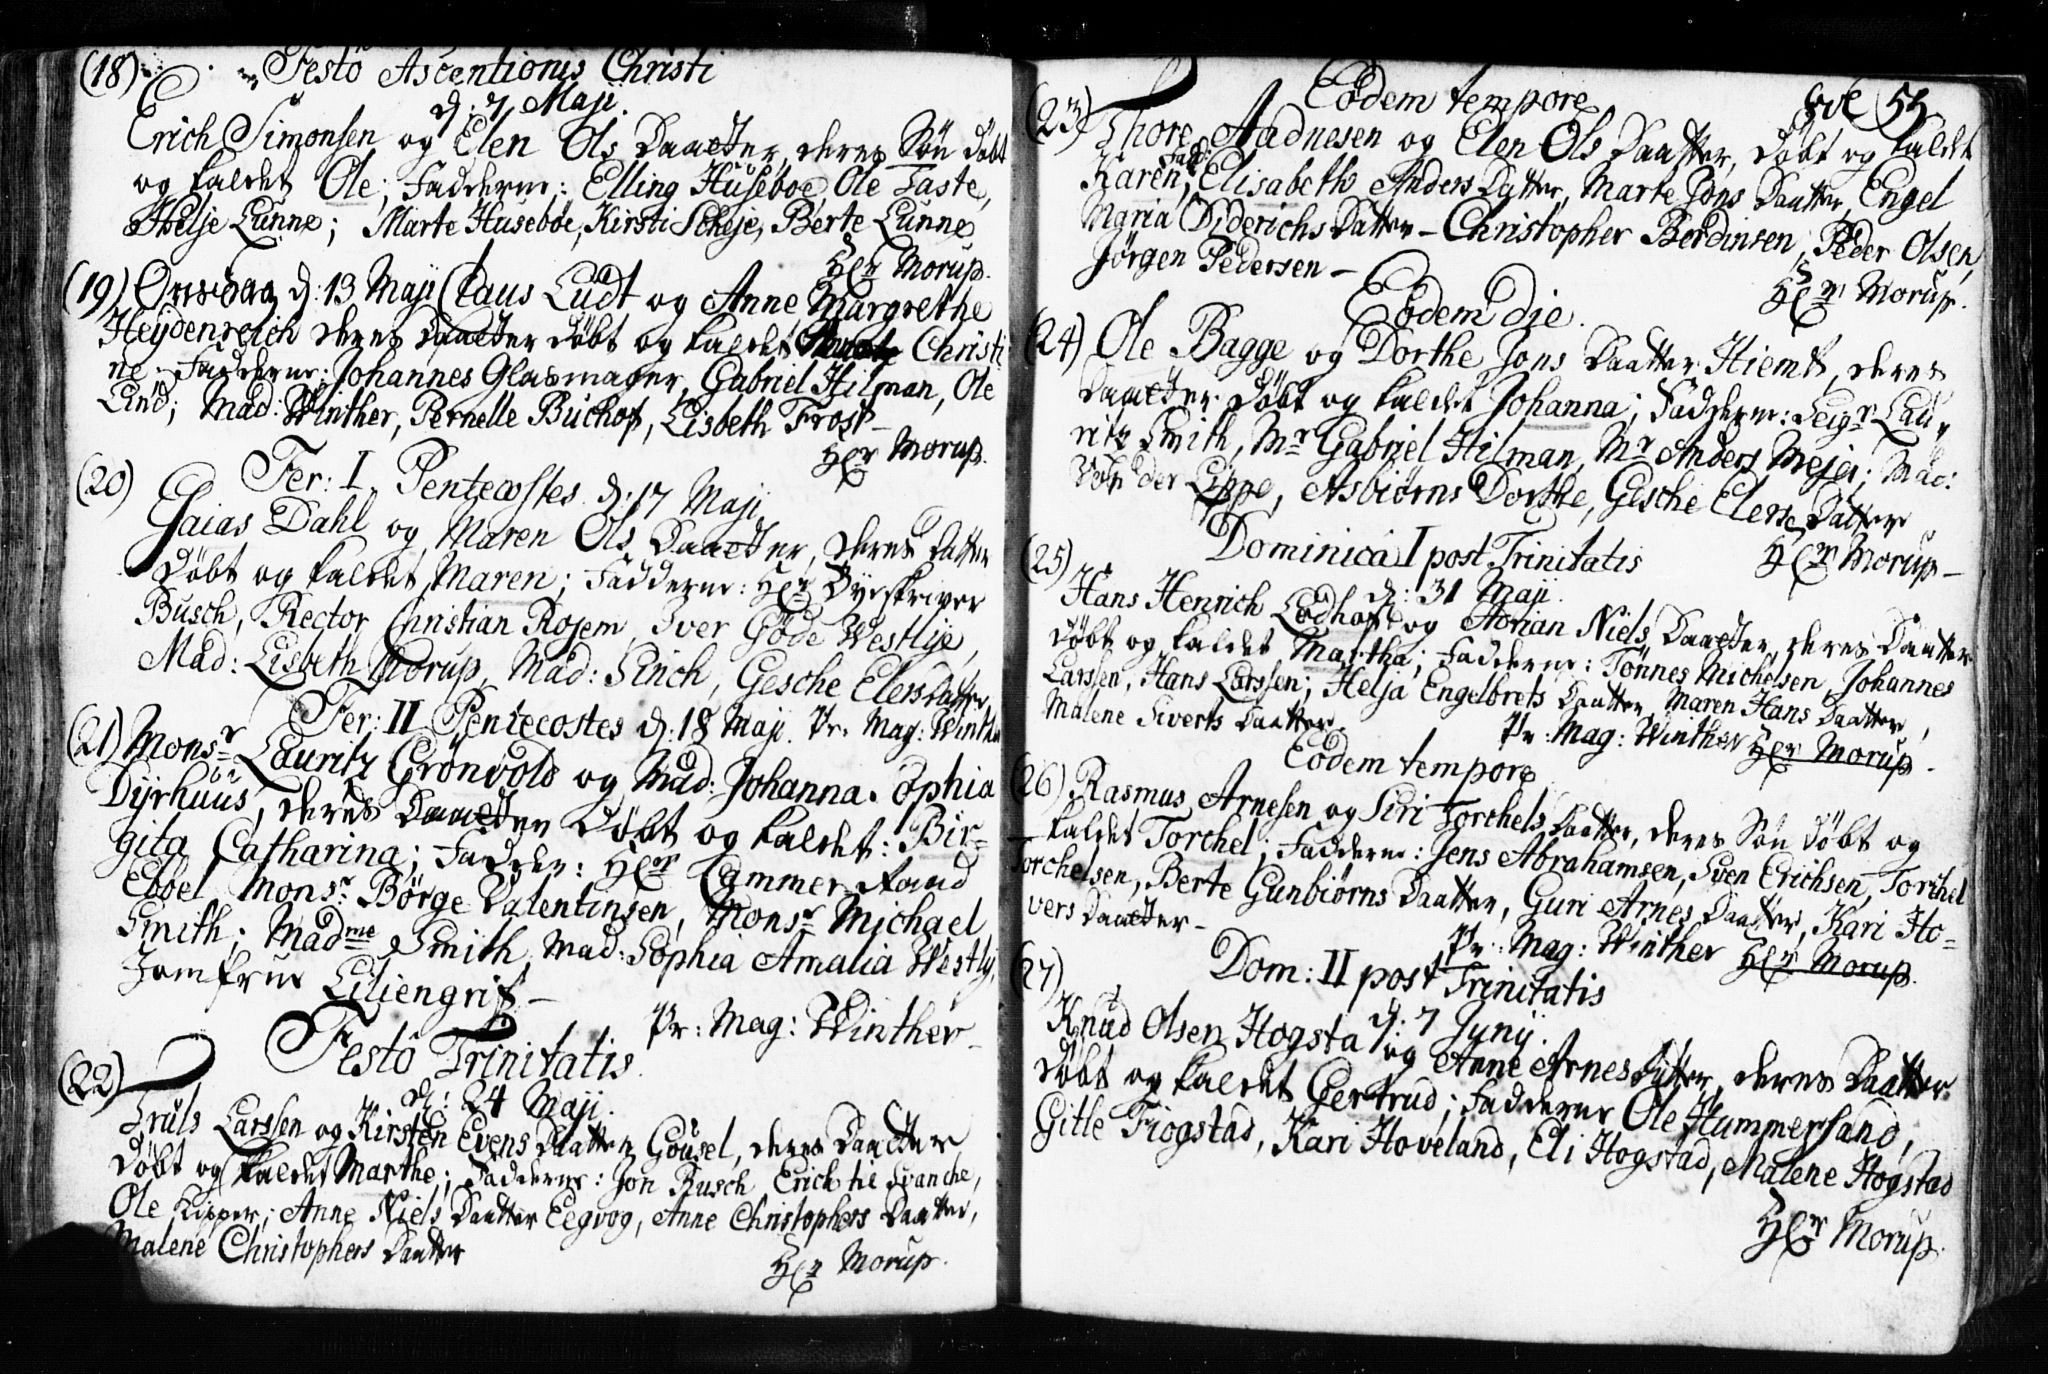 (18) Festo Ascentionis Christi
d: 7 Maji
Erich Simonsen og Elen Ols Daatter, deres Søn døbt
og kaldet Ole; Fadderne: Elling Husebøe, Ole Taste,
Helje Lunne; Marte Husebøe, Kirsti Scheje, Berte Lunne
Her Morup.
(19) Onsdag d: 13 Maji Claus Ludt og Anne Margrethe
Heydenreich deres Daatter døbt og kaldet Christi
ne. Fadderne: Johannes Glasmager, Gabriel Hilman, Ole
Lind; Mad: Winther, Pernelle Buchof, Lisbeth Frost
Her Morup.
(20) Fer: I Pentecostes d: 17 Maji
Esaias Dahl og Maren Ols Daatter, deres Datter
døbt og kaldet Maren; Fadderne: Her Byeskriver
Busch, Rector Christian Rosem, Iver Göde Westlye,
Mad: Lisbeth Morup, Mad: Finch, Gesche Elers Datter
Pr. Mag: Winther
Fer: II Pentecostes d: 18 Maji.
(21) Monsr Lauritz Grönvold og Mad: Johanna Sophia
Dyrhuus, deres Daatter Døbt og kaldet: Bir-
gita Catharina; Fadder: Her Cammer-Raad
Ebbel Monsr: Börge Valentinsen, Monsr Michael
Smith; Madme Smith, Mad: Sophia Amalia Westly,
Jomfrue Liliengrif
Pr: Mag: Winther
Festo Trinitatis
d: 24 Maji.
(22) Truls Larssen og Kirsten Evens Daatter Gousel, deres Daatter
Døbt og kaldet Marthe; Fadderne: Jon Busch Erich til Svanche,
Ole Kipper; Anne Niels Daatter Eegvog, Anne Christophers Daatter,
Malene Christophers Daatter
Her Morup.
55
Eodem tempore
(23) Thore Aadnesen og Elen Ols Daatter, døbt og kaldet
Karen, Fadd: Elisabeth Anders Datter, Marte Jons Daatter, Engel
Maria Diderichs Datter - Christopher Berdinsen, Peder Olsen,
Jørgen Pedersen -
Her Morup.
Eodem die
(24) Ole Bagge og Dorthe Jons Daatter Hiemt, deres
Daatter døbt og kaldet Johanna; Fadderne: Seigr Lau-
ritz Smith, Mr Gabriel Hilman, Mr Anders Mejer; Mad:
Von der Lippe, Asbiørns Dorthe, Gesche Elerse Datter
Her Morup -
Dominica I post Trinitatis
d: 31 Maji.
(25) Hans Henrich Lodhof og Adrian Niels Daatter, deres Daatter
døbt og kaldet Martha; Fadderne: Tönnes Michelsen, Johannes
Larssen, Hans Larssen; Helja Engelbrets Daatter, Maren Hans Daatter,
Malene Siverts Daatter.
Pr: Mag: Winther Her Morup.
Eodem tempore
(26) Rasmus Arnesen og Siri Torchels Daatter, deres Søn døbt og
kaldet Torchel; Fadderne: Jens Abrahamsen, Sven Erichsen, Torchel
Torchelsen, Berte Gunbiørns Daatter, Guri Arnes Daatter, Kari Ho-
vers Daatter -
Pr: Mag: Winther Her Morup.
Dom: II post Trinitatis
d: 7 Junij.
(27) Knud Olsen Hogsta og Anne Arnes Datter, deres Daatter
døbt og kaldet Gertrud; Fadderne Ole Hummersand,
Gitle Tiogstad, Kari Hoveland, Eli Hogstad, Malene Hogstad
Her Morup.